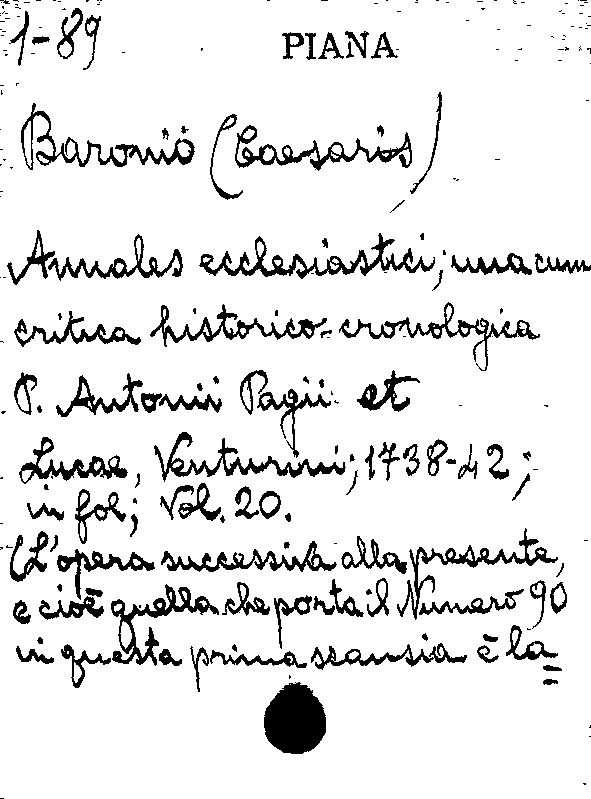 1-89
PIANA
Baronio (Caesaris)
Annales ecclesiastici; una cum
critica historico-cronologica
P. Antonii Pagii et
Lucae, Venturini; 1738-42;
in fol; Vol. 20.
(L'opera successiva alla presente,
e cioè quella che porta il Numero 90
in questa prima scansia è la=